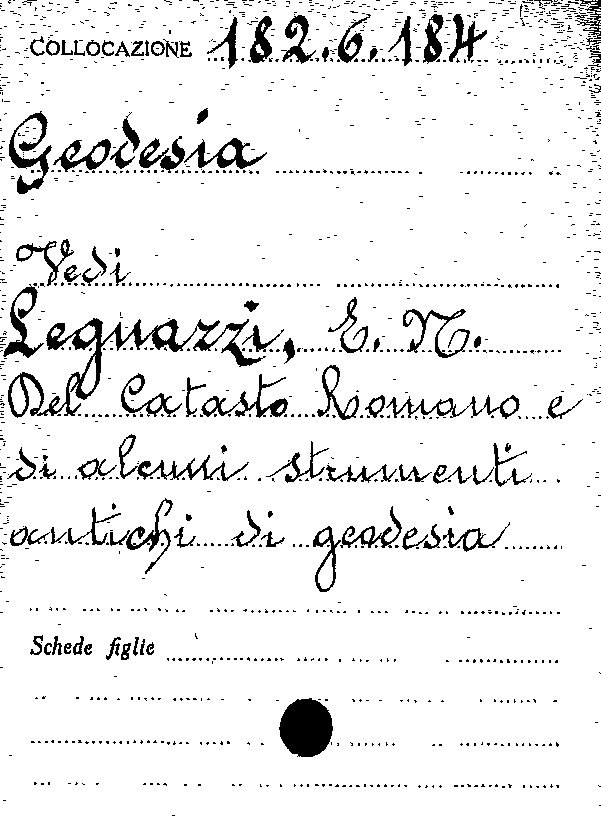 COLLOCAZIONE 182.6.184
Geodesia
Vedi
Legnazzi, E. N.
Del Catasto Romano e
di alcuni strumenti
antichi di geodesia
Schede figlie